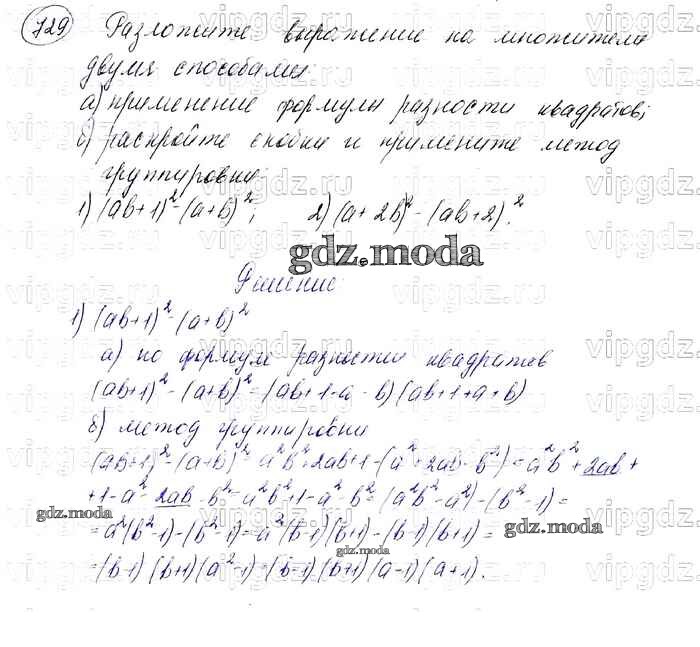 729 Разложите выражение на множители
двумя способами:
а) применение формулы разности квадратов;
б) раскройте скобки и примените метод
группировки:
1) (ab+1)²-(a+b)²; 2) (a+2b)²-(ab+2)².
gdz.moda
Решение:
1) (ab+1)²-(a+b)²
а) по формуле разности квадратов
(ab+1)²-(a+b)²=(ab+1-a-b)(ab+1+a+b)
б) метод группировки
(ab+1)²-(a+b)²=a²b²+2ab+1-(a²+2ab-b²)=a²b²+2ab+
+1-a²-2ab-b²=a²b²+1-a²-b²=(a²b²-a²)-(b²-1)=
gdz.moda
=a²(b²-1)-(b²-1)=a²(b-1)(b+1)-(b-1)(b+1)=
gdz.moda
gdz.moda
=(b-1)(b+1)(a²-1)=(b-1)(b+1)(a-1)(a+1).